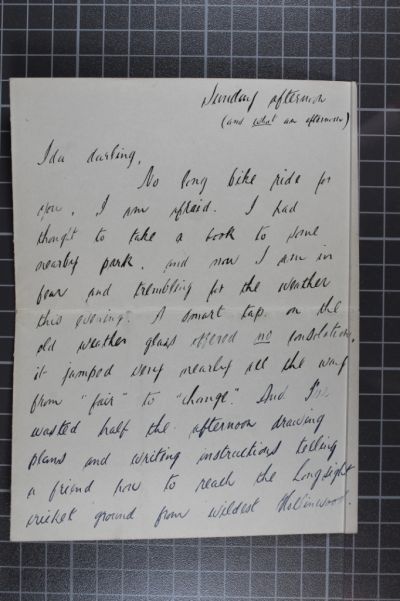 Sunday afternoon
(and what an afternoon)
Ida darling,
No long bike ride for
you, I am afraid. I had
thought to take a book to some
nearby park, and now I am in
fear and trembling for the weather
this evening. A smart tap on the
old weather glass offered no consolation,
it jumped very nearly all the way
from "fair" to "change". And I've
wasted half the afternoon drawing
plans and writing instructions telling
a friend how to reach the Longsight
cricket ground from wildest Hollinwood.